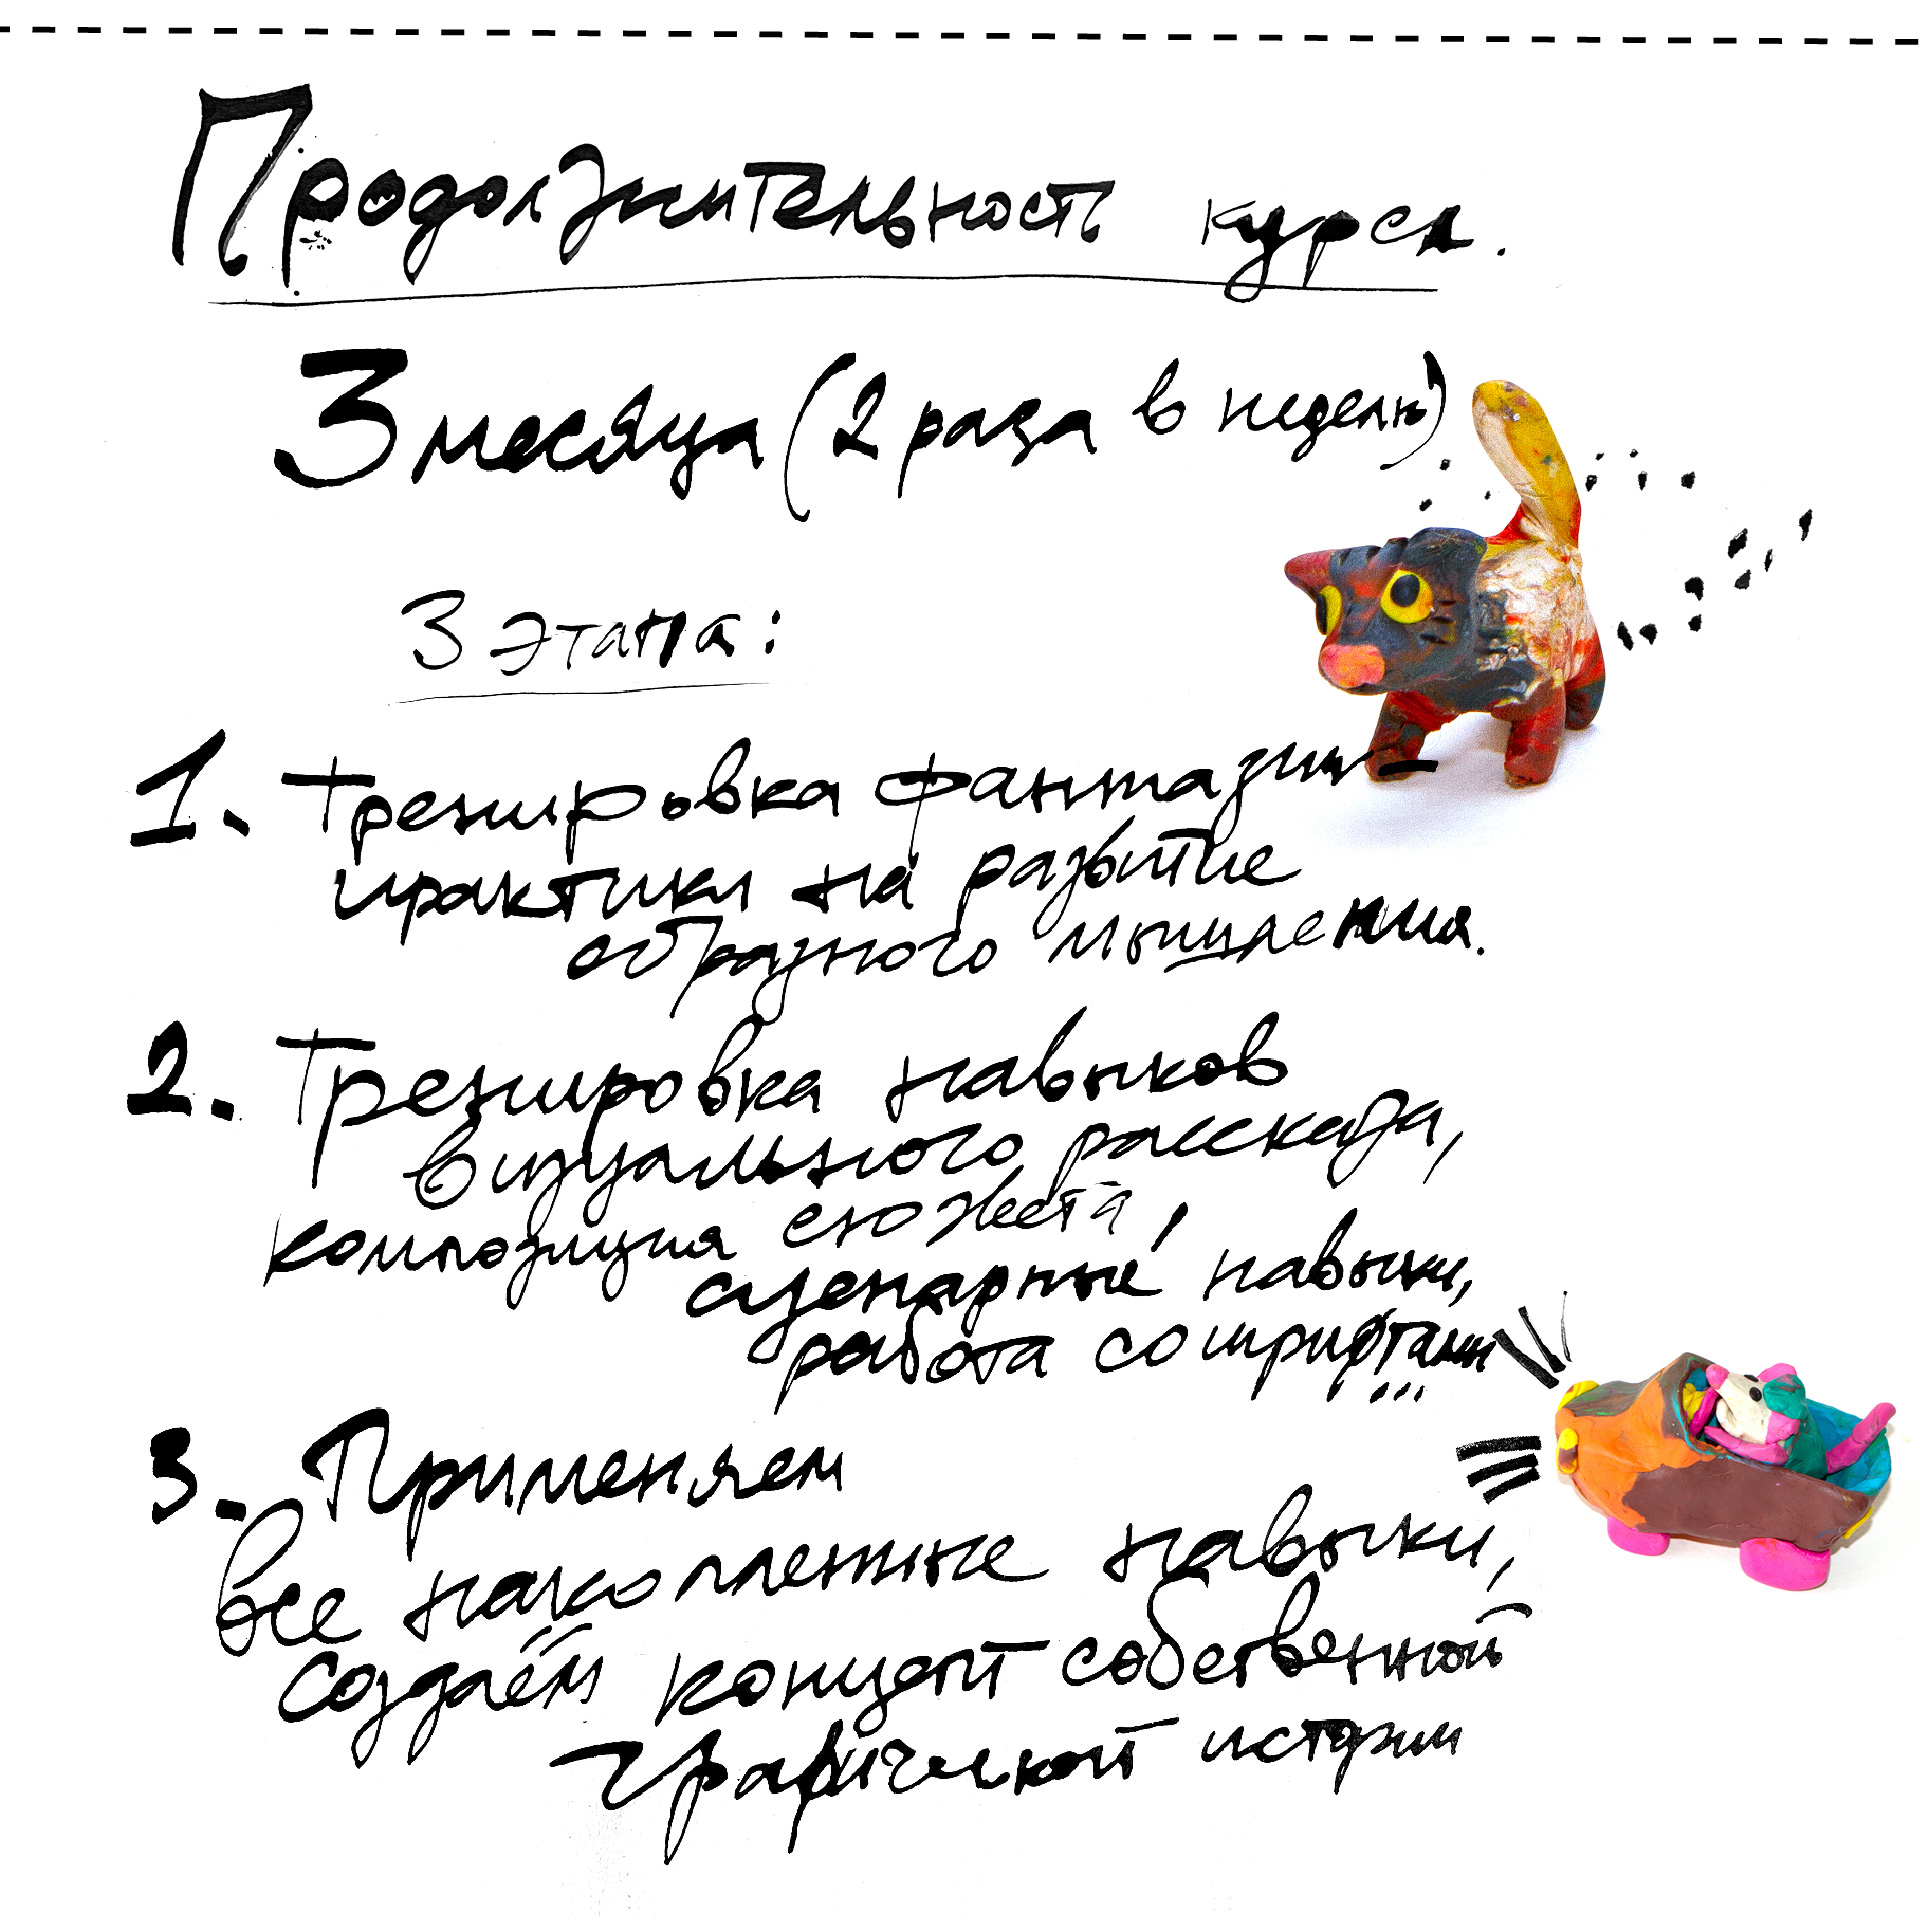 Продолжительность курса.
3 месяца (2 раза в неделю)
3 этапа:
1. Тренировка фантазии –
практики на развитие
образного мышления.
2. Тренировка навыков
визуального рассказа,
композиция сюжета,
сценарные навыки,
работа со шрифтами
...
3. Применяем
все накопленные навыки,
создаём концепт собственной
графической истории